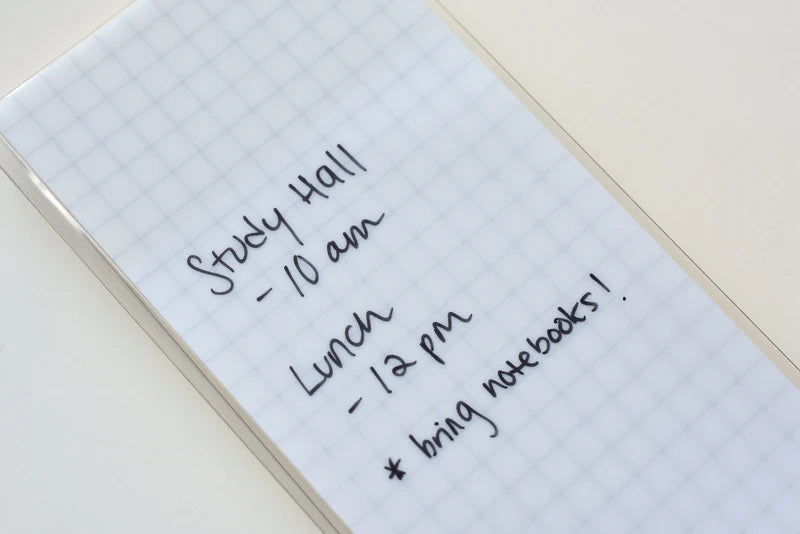 Study Hall
- 10 am
Lunch
- 12 pm
* bring notebooks!